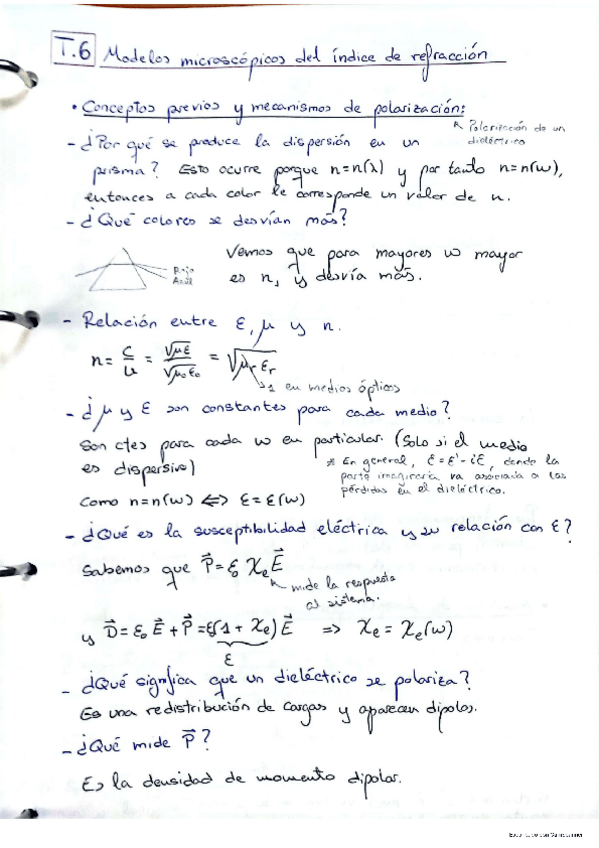 T.6 Modelos microscópicos del índice de refracción
• Conceptos previos y mecanismos de polarización:
↖ Polarización de un dieléctrico
- ¿Por qué se produce la dispersión en un
prisma? Esto ocurre porque n=n(λ) y por tanto n=n(ω),
entonces a cada color le corresponde un valor de n.
- ¿Qué colores se desvían más?
Rojo
Azul
Vemos que para mayores ω mayor
es n, y desvía más.
- Relación entre ε, μ y n.
n = c/υ = √με/√μ₀ε₀ = √μᵣ εᵣ
↘1 en medios ópticos
- ¿μ y ε son constantes para cada medio?
Son ctes para cada ω en particular. (Solo si el medio
es dispersivo)
* En general, ε = ε' - iε, donde la
parte imaginaria va asociada a las
pérdidas en el dieléctrico.
Como n=n(ω) ⟺ ε=ε(ω)
- ¿Qué es la susceptibilidad eléctrica y su relación con ε?
Sabemos que P⃗ = ε₀ χe E⃗
↖ mide la respuesta
al sistema.
y D⃗ = ε₀ E⃗ + P⃗ = ε₀(1 + χe) E⃗ ⇒ χe = χe(ω)
ε
- ¿Qué significa que un dieléctrico se polariza?
Es una redistribución de cargas y aparecen dipolos.
- ¿Qué mide P⃗?
Es la densidad de momento dipolar.